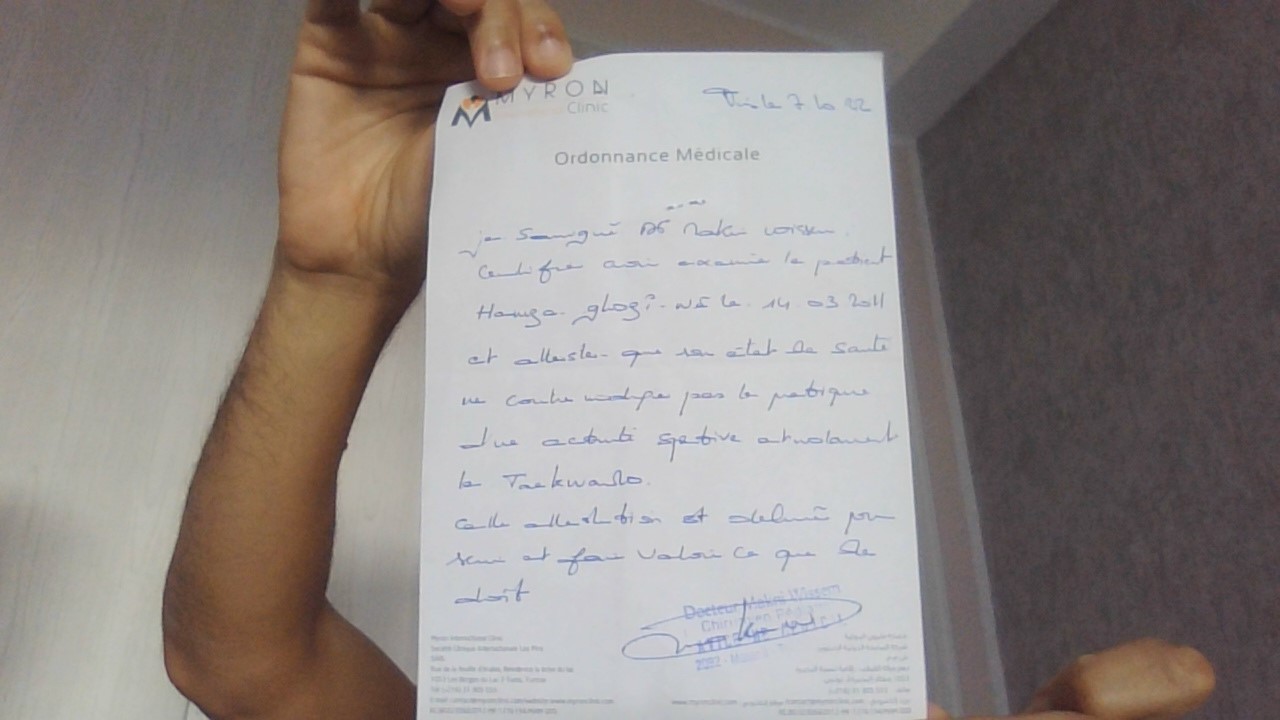 MYRON
Clinic
Tunis le 7 10 22
Ordonnance Médicale
je soussigné Dr Makni Wissem
Certifie avoir examiné le patient
Hamza ghozi - Né le 14 03 2011
et atteste que son état de santé
ne contre indique pas la pratique
d'une activité sportive notamment
le Taekwando.
Cette attestation est délivrée pour
servir et faire valoir ce que de
doit
Docteur Makni Wissem
Myron International Clinic
www.myronclinic.com